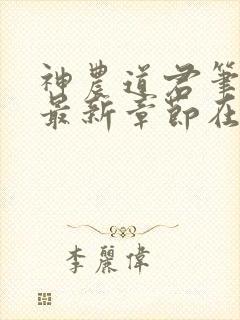 神農道君筆
最新章節在
李麗偉